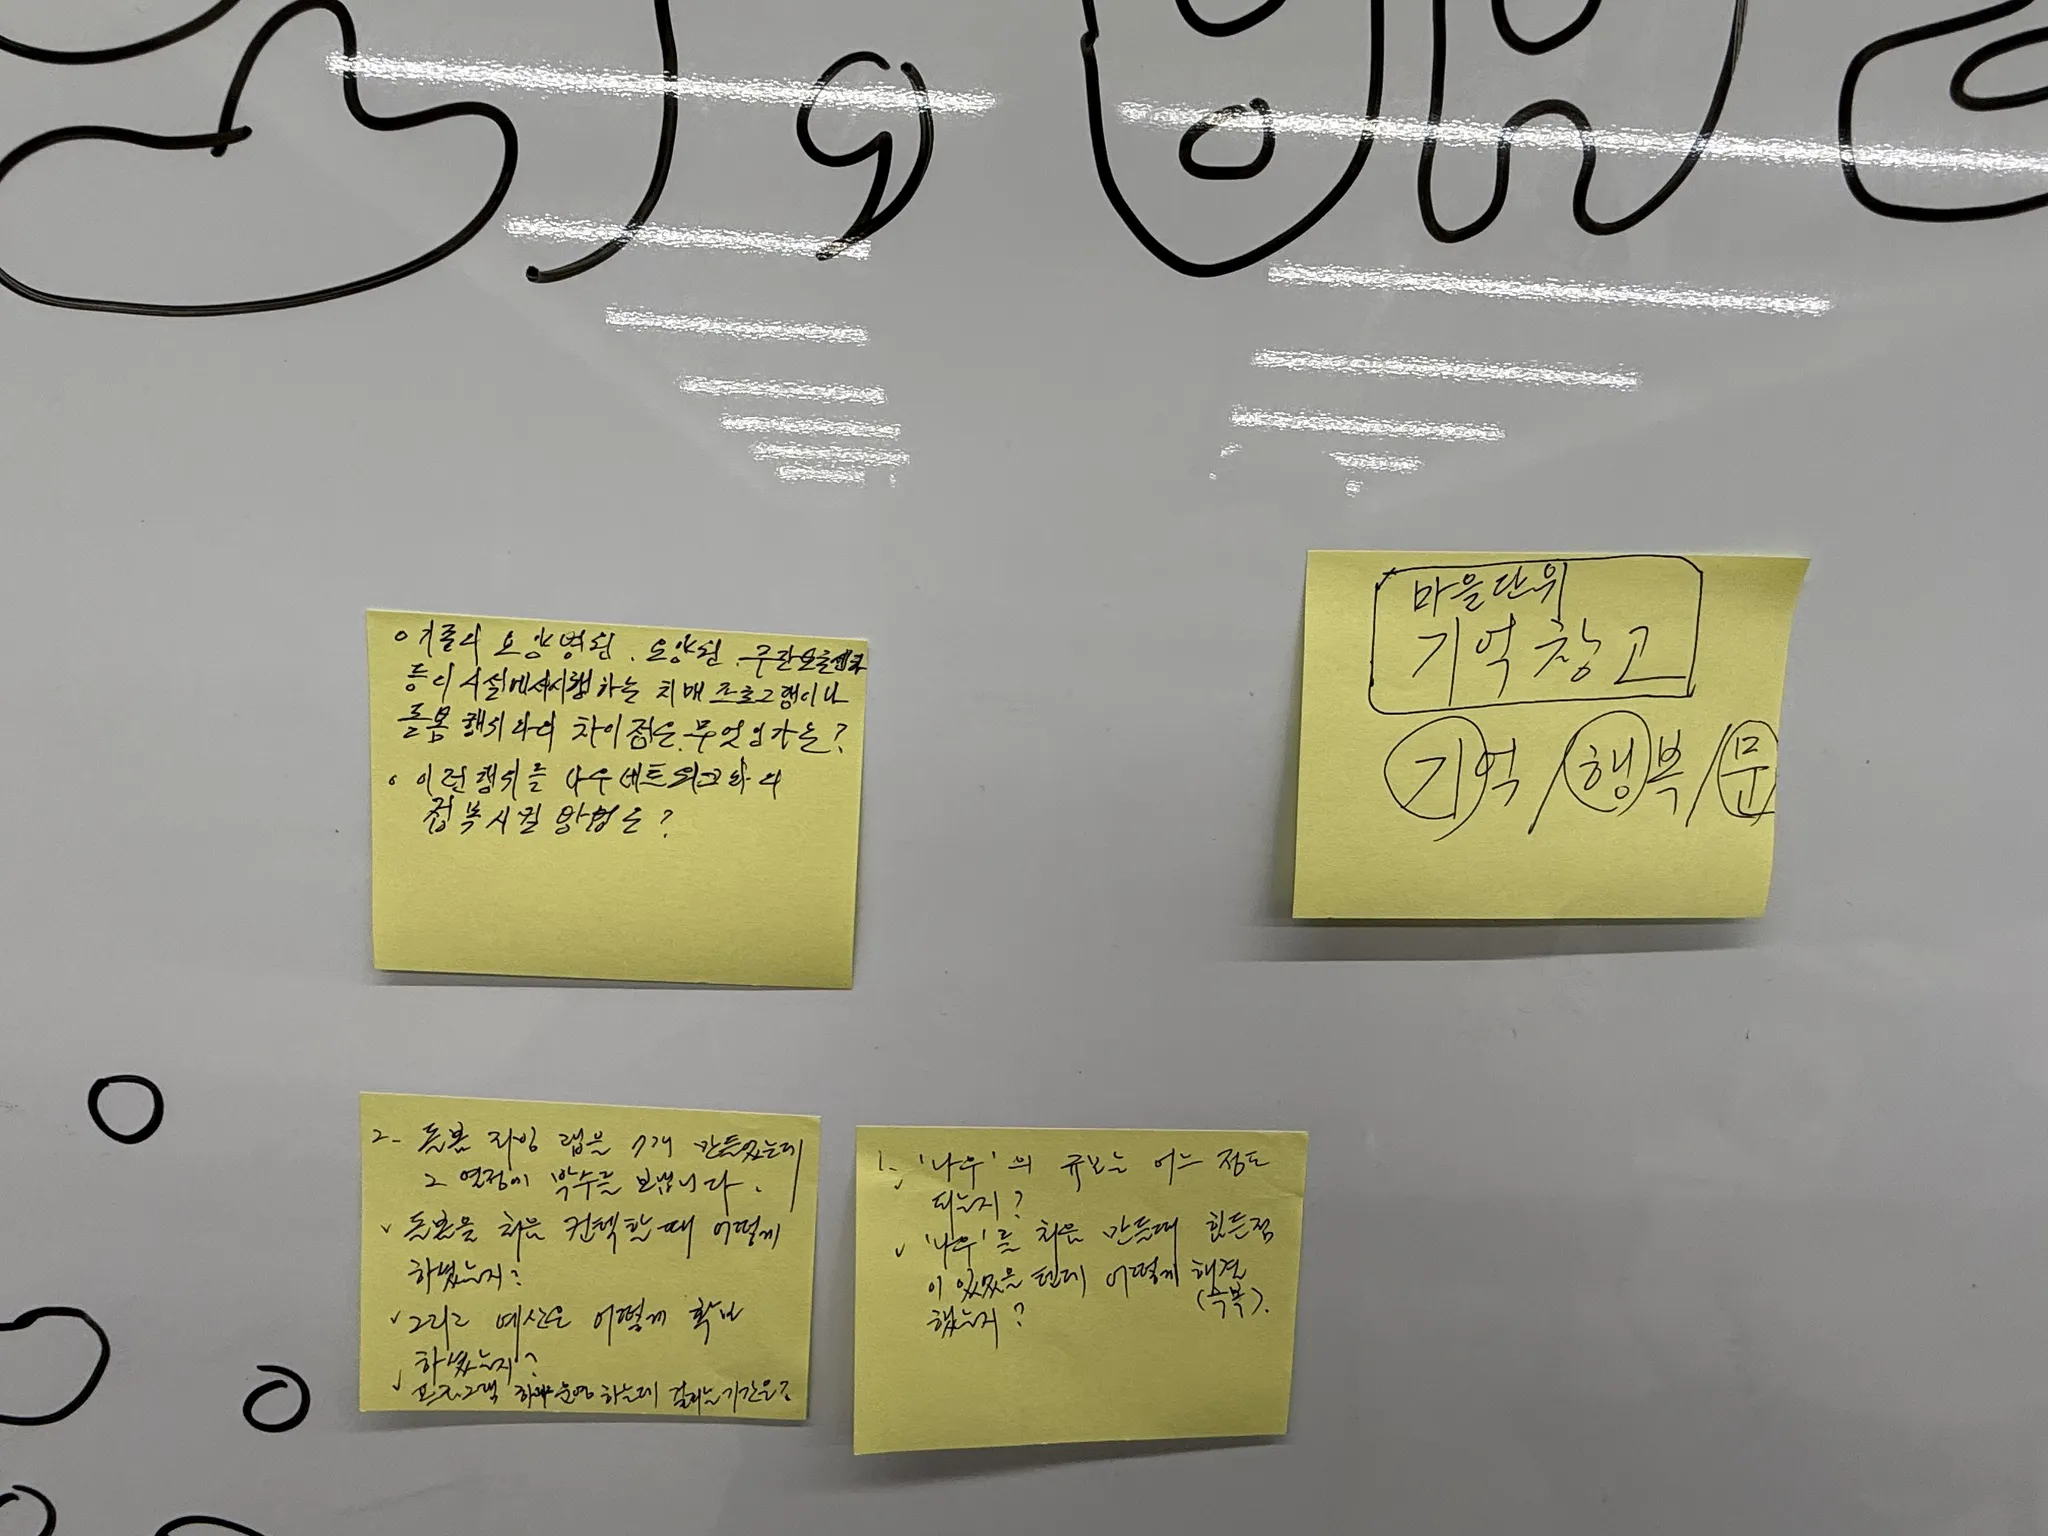 o 기존의 요양병원, 요양원, 주간보호센터
등의 시설에서 시행하는 치매 프로그램이나
돌봄 행위와의 차이점은 무엇인가는?
o 이런 행위를 나우 네트워크와의
접목시킬 방법은?
마을단위
기억창고
기억/행복/문
2- 돌봄 리빙 랩을 7개 만들었는데
그 열정에 박수를 보냅니다.
v 돌봄을 처음 컨택할 때 어떻게
하셨는지?
v 그리고 예산은 어떻게 확보
하셨는지?
v 프로그램 하나 운영하는데 걸리는 기간은?
1- '나우'의 규모는 어느 정도
되는지?
v '나우'를 처음 만들때 힘든점
이 있었을 텐데 어떻게 해결
(극복).
했는지?